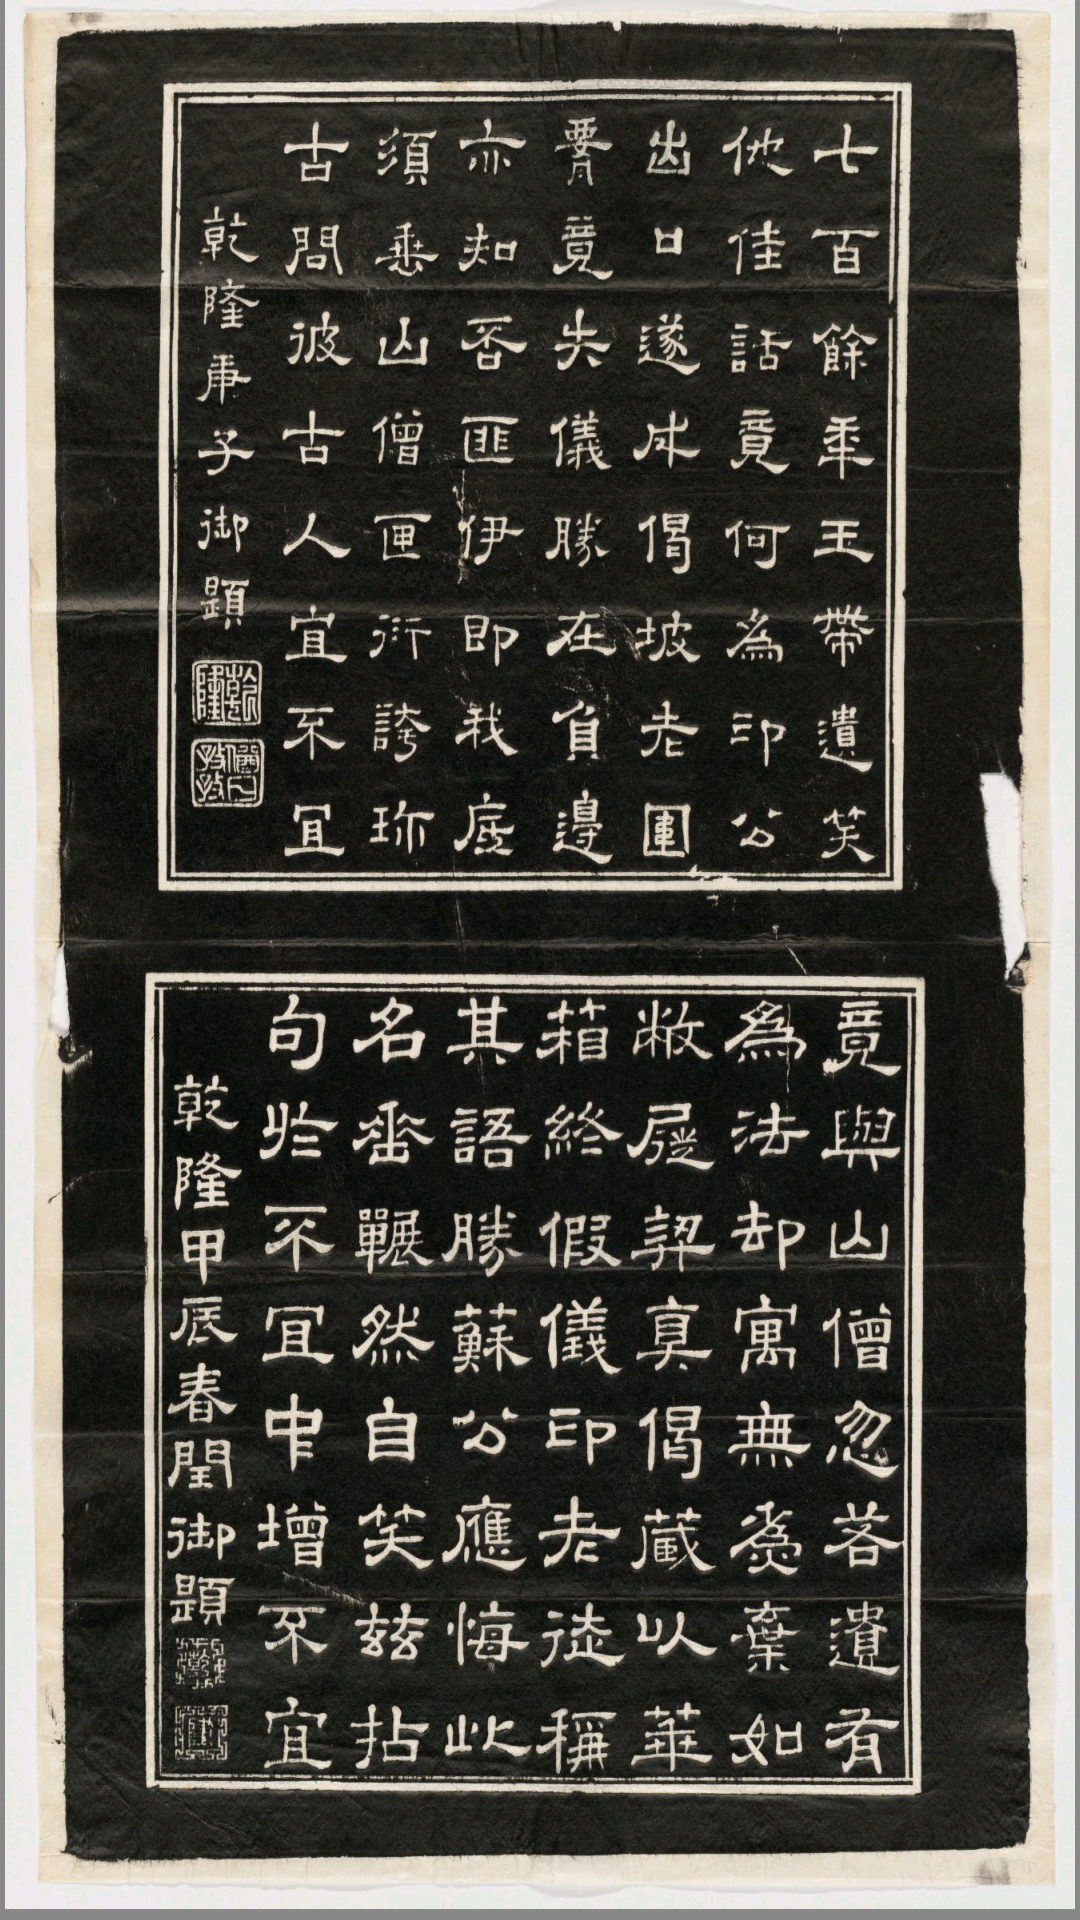 七百餘年玉帶遺笑
他佳話竟何為印公
出口遂成偈坡老圍
腰竟失儀勝在負邊
亦知否匪伊即我底
須垂山僧匣衍誇珎
古問彼古人宜不宜
乾隆庚子御題
乾隆
猶日孜孜
竟與山僧忽若遺有
為法却寓無為棄如
敝屣契真偈藏以華
箱終假儀印老徒稱
其語勝蘇公應悔此
名垂囅然自笑兹拈
句於不宜中增不宜
乾隆甲辰春閏御題